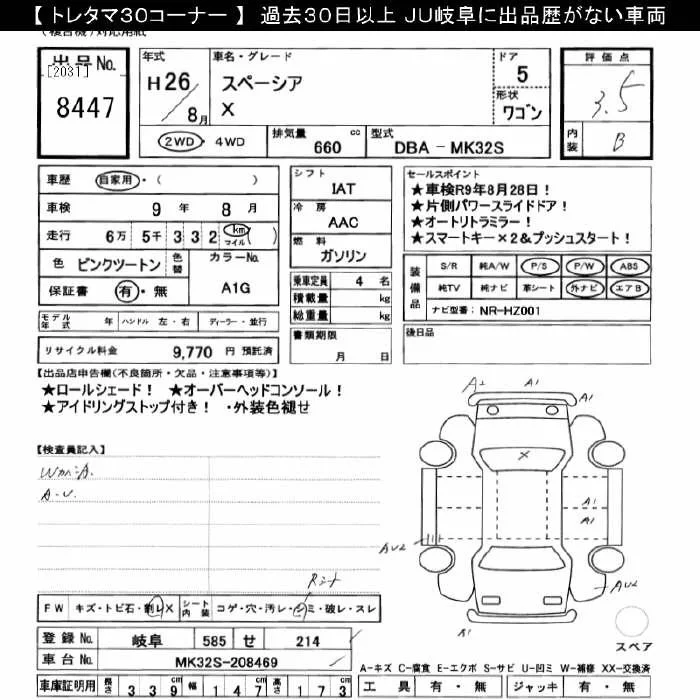 【 トレタマ30コーナー 】 過去30日以上 JU岐阜に出品歴がない車両
出品No.
[2031]
8447
年式
H26
8月
車名・グレード
スペーシア
X
ドア
5
形状
ワゴン
2WD ・ 4WD
排気量
660 cc
型式
DBA - MK32S
評価点
3.5
内装
B
車歴 自家用・( )
車検 9 年 8 月
走行 6万 5千 3 3 2 km マイル ( )
色 ピンクツートン 色替
カラーNo.
A1G
保証書 有・無
シフト
IAT
冷房
AAC
燃料
ガソリン
乗車定員 4 名
積載量 kg
総重量 kg
書類期限
月 日
セールスポイント
★車検R9年8月28日!
★片側パワースライドドア!
★オートリトラミラー!
★スマートキー×2&プッシュスタート!
装備品
S/R 純A/W P/S P/W ABS
純TV 純ナビ 革シート 外ナビ エアB
ナビ型番: NR-HZ001
後日品
モデル年式 年 ハンドル 左・右 ディーラー・並行
リサイクル料金 9,770 円 預託済
【出品店申告欄(不良箇所・欠品・注意事項等)】
★ロールシェード! ★オーバーヘッドコンソール!
★アイドリングストップ付き! ・外装色褪せ
【検査員記入】
A・U.
A1
A1
A1
X
A1
A1
AU2
AU2
スペア
FW キズ・トビ石・割レX
シート内装 コゲ・穴・汚レ・シミ・破レ・スレ
登録No. 岐阜 585 せ 214
車台No. MK32S-208469
車庫証明用 長さ 339cm 幅 147cm 高さ 173cm
A-キズ C-腐食 E-エクボ S-サビ U-凹ミ W-補修 XX-交換済
工具 有・無 ジャッキ 有・無